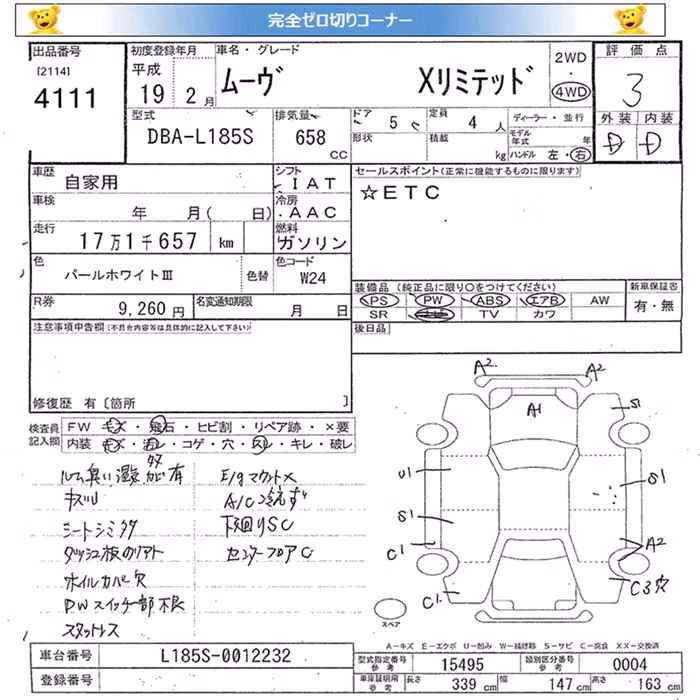 完全ゼロ切りコーナー
出品番号
[2114]
4111
初度登録年月
平成
19 2月
車名・グレード
ムーヴ Xリミテッド
2WD
・
4WD
評価点
3
外装 内装
D D
型式
DBA-L185S
排気量
658
CC
ドア
5
定員
4人
形状
積載
kg
ディーラー・並行
モデル年式 年
ハンドル 左・右
車歴
自家用
シフト
IAT
車検
年 月( 日)
冷房
AAC
走行
17万1千657 km
燃料
ガソリン
色
パールホワイトⅢ
色替
色コード
W24
R券
9,260円
名変通知期限
月 日
セールスポイント(正常に機能するものに限ります)
☆ETC
装備品(純正品に限り○をつけてください)
PS PW ABS エアB AW
SR TV カワ
新車保証書
有・無
後日品
注意事項申告欄(不具合内容等は具体的に記入して下さい)
修復歴 有〔箇所 〕
検査員記入欄
FW キズ・飛石・ヒビ割・リペア跡・×要
内装 キズ・汚レ・コゲ・穴・スレ・キレ・破レ
キズU
シートシミタダ
ホイルカバー欠
PWスイッチ部不良
スタットレス
E/gマウント×
A/C冷えず
下廻りSC
センターフロアC
A2 A2
A1
S1
U1
S1
S1
C1
A2
C1
C3穴
スペア
A-キズ E-エクボ U-凹み W-補修跡 S-サビ C-腐食 XX-交換済
車台番号
L185S-0012232
登録番号
型式指定番号
参考
15495
類別区分番号
参考
0004
車庫証明用
参考
長さ
339 cm
幅
147 cm
高さ
163 cm